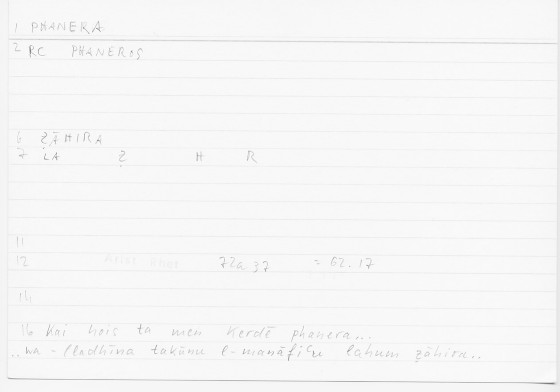 1 PHANERA
2 RC PHANEROS
6 ẒĀHIRA
7 LA Ẓ H R
11
12 72a 37 = 62.17
14
16 kai hois ta men kerdē phanera...
..wa-lladhīna takūnu l-manāfiʿu lahum ẓāhira..